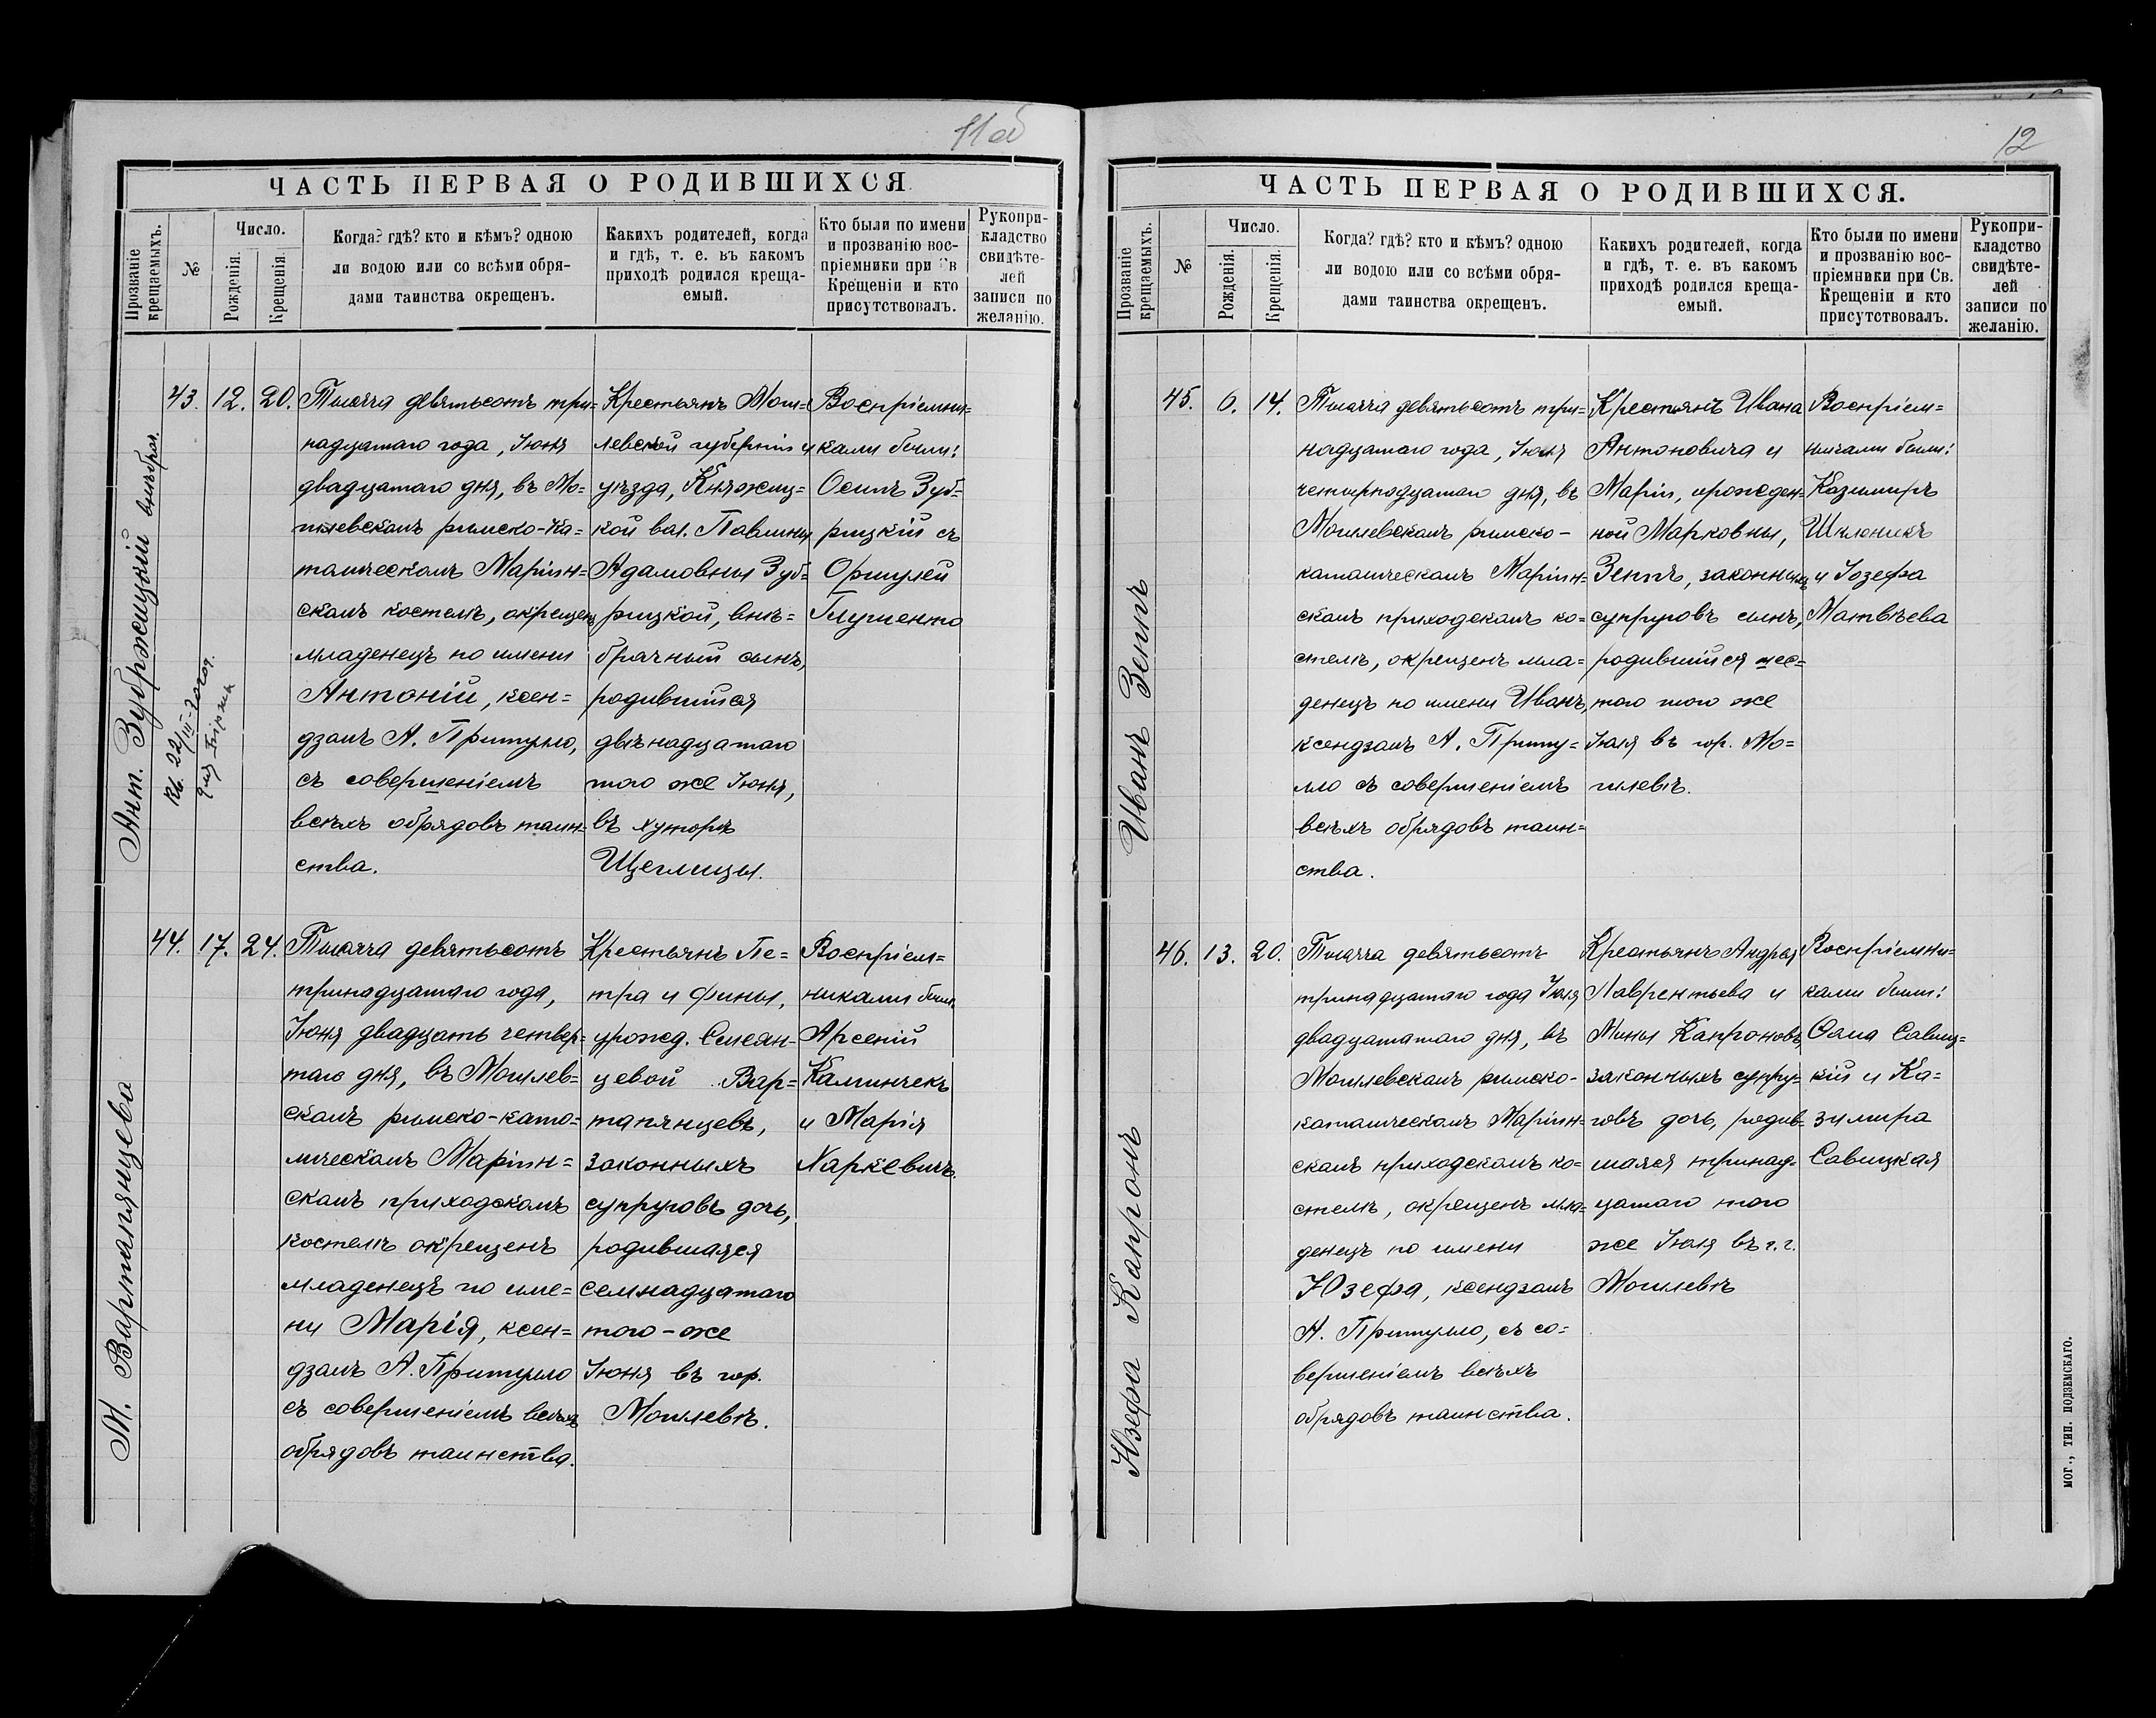 11об
ЧАСТЬ ПЕРВАЯ О РОДИВШИХСЯ
Прозваніе крещаемыхъ.
№
Число.
Рожденія.
Крещенія.
Когда? гдѣ? кто и кѣмъ? одною
ли водою или со всѣми обря-
дами таинства окрещенъ.
Какихъ родителей, когда
и гдѣ, т. е. въ какомъ
приходѣ родился креща-
емый.
Кто были по имени
и прозванію вос-
пріемники при Св
Крещеніи и кто
присутствовалъ.
Рукопри-
кладство
свидѣте-
лей
записи по
желанію.
Ант. Зубржицкій внѣбрач.
43.
12.
20.
Тысяча девятьсотъ три=
надцатаго года, Іюня
двадцатаго дня, въ Мо=
гилевскомъ римско-ка=
толическомъ Маріин=
скомъ костелѣ, окрещенъ
младенецъ по имени
Антоній, ксен=
дзомъ А. Притулло,
съ совершеніемъ
всѣхъ обрядовъ таин=
ства.
Крестьянъ Моги=
левской губерніи и
уѣзда, Княжиц=
кой вол. Павлины
Адамовны Зуб=
рицкой, внѣ=
брачный сынъ,
родившійся
двѣнадцатаго
того же Іюня,
въ хуторѣ
Щеглицы.
Воспріемни=
ками были:
Осипъ Зуб=
рицкій съ
Оршулей
Глушенко
М. Вартапянцева
44.
17.
24.
Тысяча девятьсотъ
тринадцатаго года,
Іюня двадцать четвер=
таго дня, въ Могилев=
скомъ римско-като=
лическомъ Маріин=
скомъ приходскомъ
костелѣ окрещенъ
младенецъ по име=
ни Марія, ксен=
дзомъ А. Притулло
съ совершеніемъ всѣхъ
обрядовъ таинства.
Крестьянъ Пе=
тра и Фины,
урожд. Смеян-
цевой Вар=
тапянцевъ,
законныхъ
супруговъ дочь,
родившаяся
семнадцатаго
того-же
Іюня въ гор.
Могилевѣ.
Воспріем=
никами были
Арсеній
Калинчекъ
и Марія
Харкевичъ.
12
ЧАСТЬ ПЕРВАЯ О РОДИВШИХСЯ.
Прозваніе крещаемыхъ.
№
Число.
Рожденія.
Крещенія.
Когда? гдѣ? кто и кѣмъ? одною
ли водою или со всѣми обря-
дами таинства окрещенъ.
Какихъ родителей, когда
и гдѣ, т. е. въ какомъ
приходѣ родился креща-
емый.
Кто были по имени
и прозванію вос-
пріемники при Св.
Крещеніи и кто
присутствовалъ.
Рукопри-
кладство
свидѣте-
лей
записи по
желанію.
Иванъ Зеппъ
45.
6.
14.
Тысяча девятьсотъ три=
надцатаго года, Іюля
четырнадцатаго дня, въ
Могилевскомъ римско-
католическомъ Маріин=
скомъ приходскомъ ко=
стелѣ, окрещенъ мла=
денецъ по имени Иванъ,
ксендзомъ А. Приту=
лло съ совершеніемъ
всѣхъ обрядовъ таин=
ства.
Крестьянъ Ивана
Антоновича и
Маріи, урожден=
ной Марковны,
Зеппъ, законныхъ
супруговъ сынъ,
родившійся шес=
того того же
Іюля въ гор. Мо=
гилевѣ.
Воспріем=
никами были:
Казимиръ
Шклюникъ
и Іозефа
Матвѣева
Юзефа Капронъ
46.
13.
20.
Тысяча девятьсотъ
тринадцатаго года Іюля
двадцатаго дня, въ
Могилевскомъ римско-
католическомъ Маріин=
скомъ приходскомъ ко=
стелѣ, окрещенъ мла=
денецъ по имени
Юзефа, ксендзомъ
А. Притулло, съ со=
вершеніемъ всѣхъ
обрядовъ таинства.
Крестьянъ Андрея
Лаврентьева и
Мины Капроновъ,
законныхъ супру=
говъ дочь, родив=
шаяся тринад=
цатаго того
же Іюля въ г.г.
Могилевѣ
Воспріемни=
ками были:
Фама Савиц=
кій и Ка=
зимира
Савицкая
МОГ., ТИП. ПОДЗЕМСКАГО.